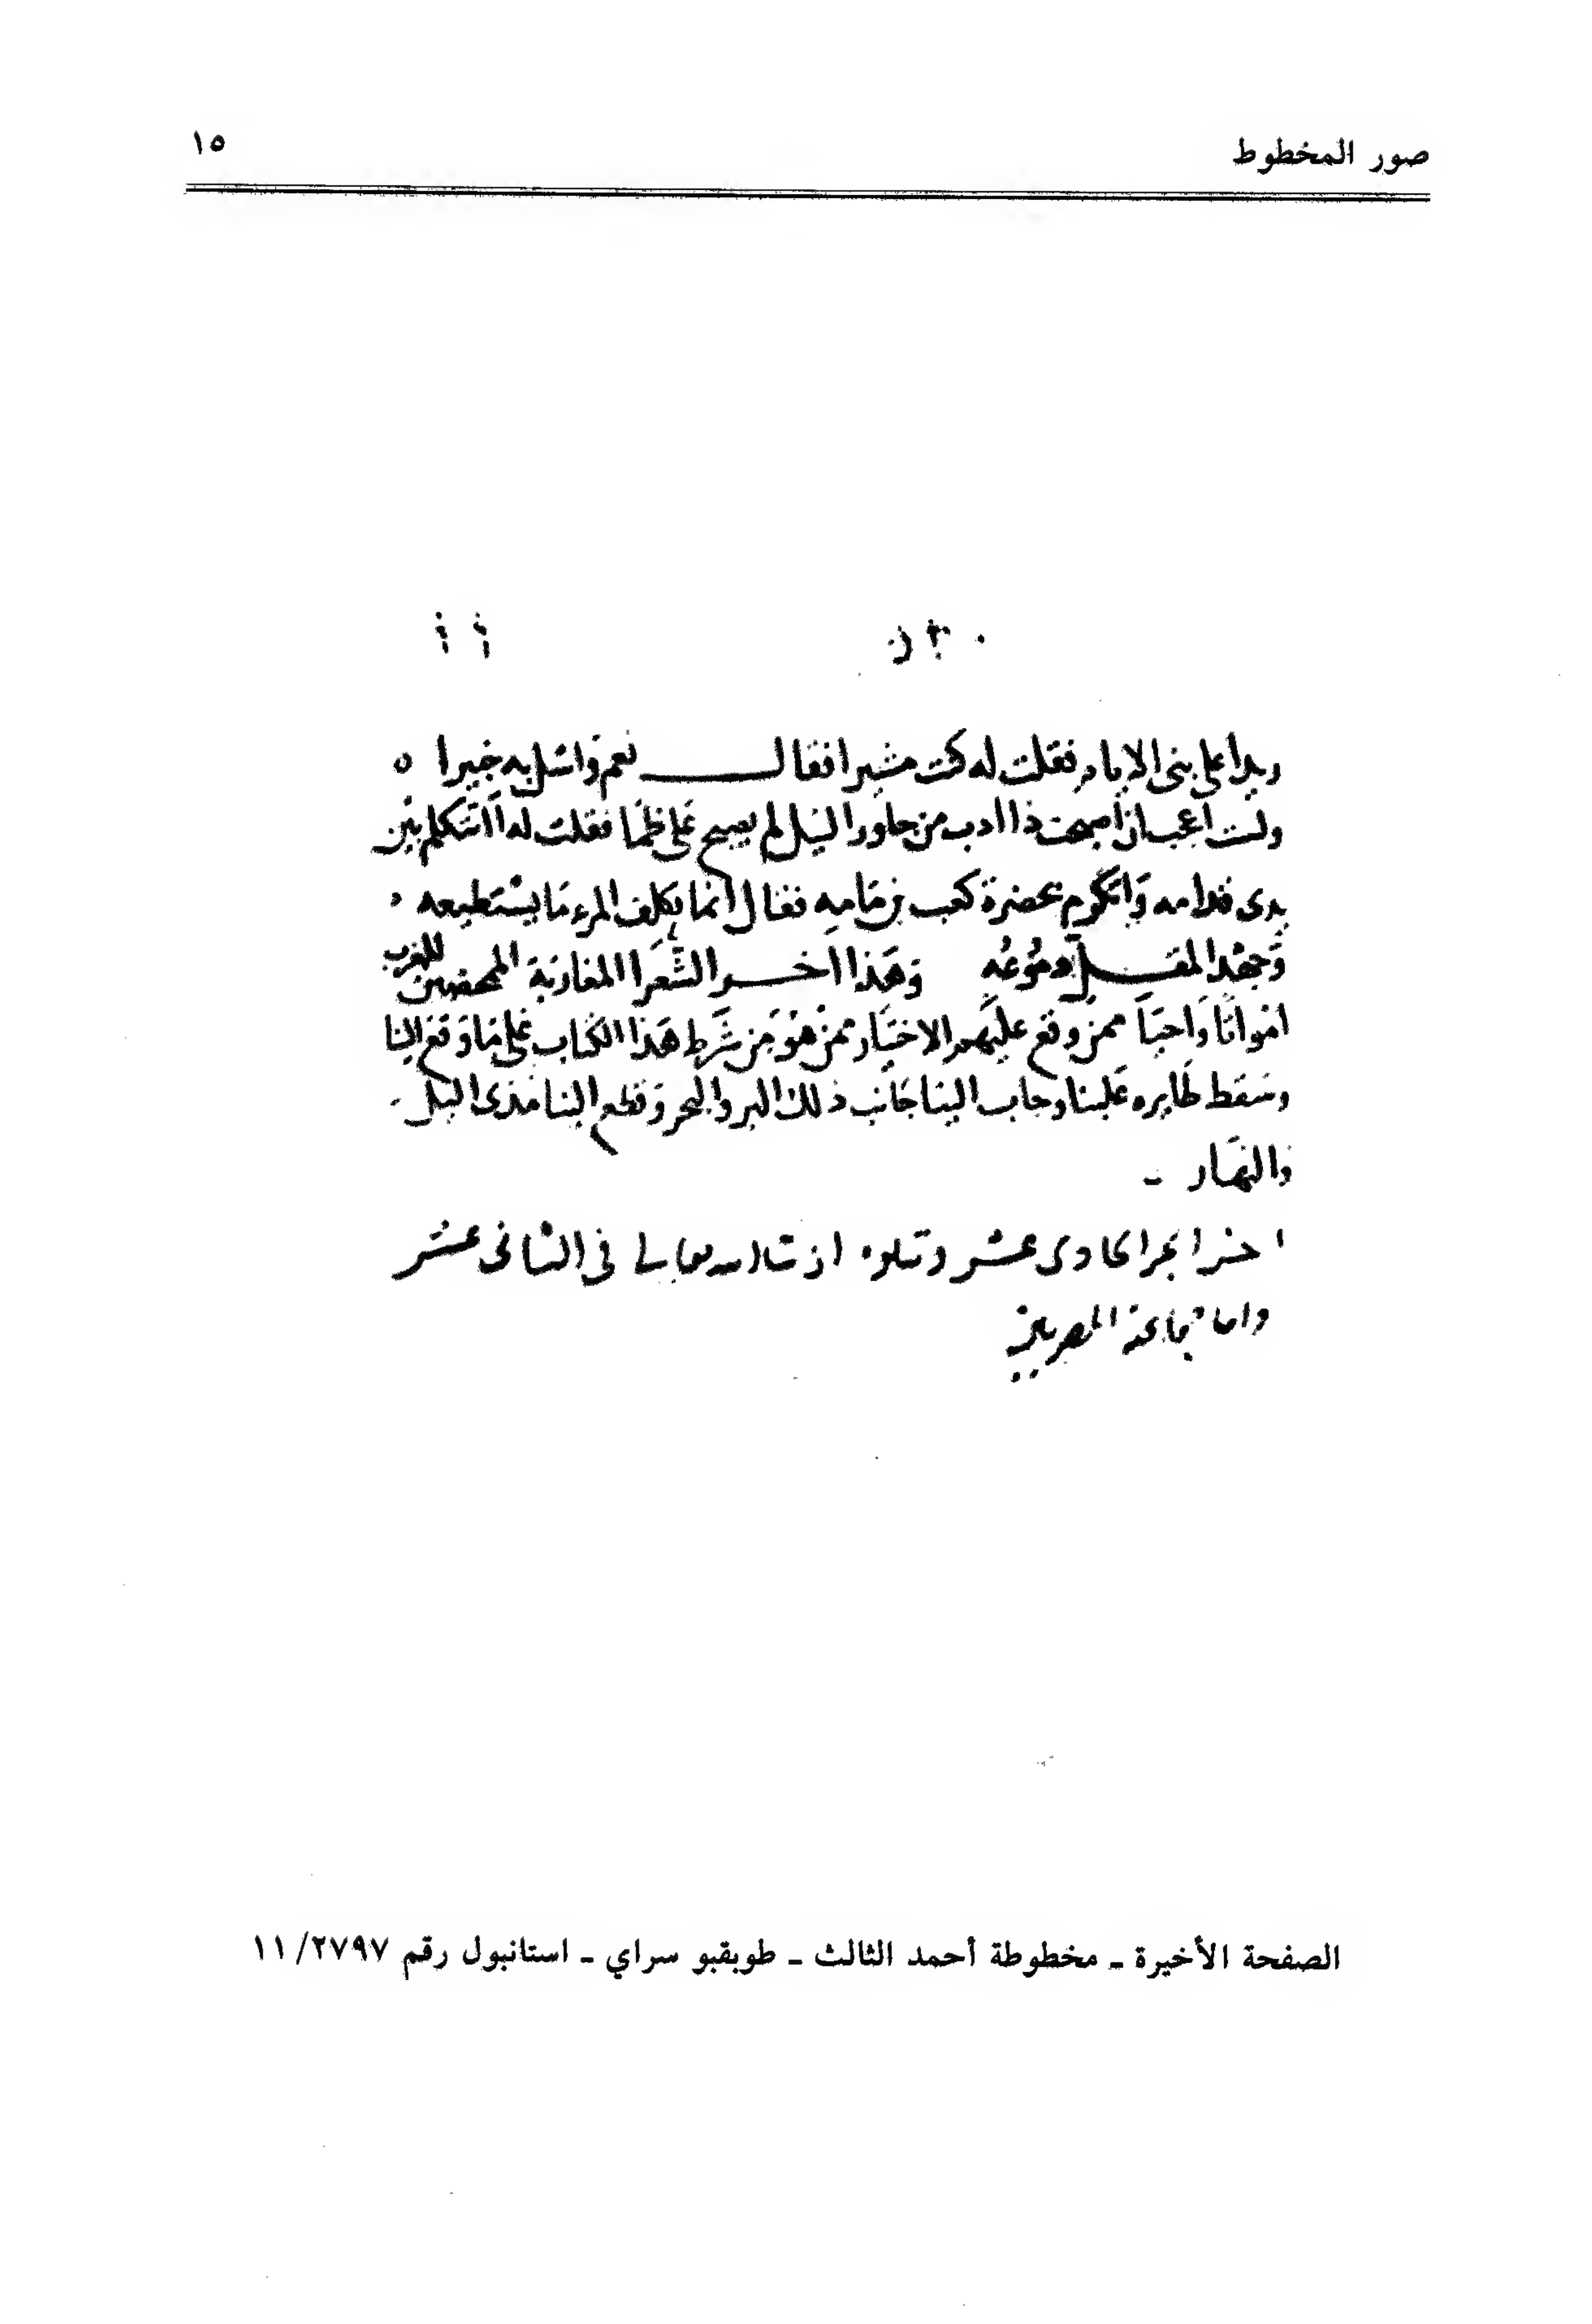 صور المخطوط ١٥
ويدا على بنى الايام فقلت له كنت مشيرا فقال نعم واسئل به خبيرا ه
ولست اعجب ان اصبحت ذا ادب من جاور النيل لم يصبح على ظما فقلت له اتتكلم بين
يدى قدامه وتتكرم بحضرة كعب بن مامه فقال انما يكلف المرء ما يستطيعه
وجهد المقل دموعه وهذا اخر الشعرا المغاربة المحضين للغرب
امواتا واحيا ممن وقع عليهم الاختيار ممن هو من شرط هذا الكتاب على ما وقع الينا
وسقط طايره علينا وجاب الينا جانب ذلك البر والبحر وقطع الينا مدى الليل
والنهار
اخر الجزا الحادى عشر وتتلوه ان شا الله تعالى فى الثانى عشر
واما جماعة المصريين
الصفحة الأخيرة - مخطوطة أحمد الثالث - طوبقبو سراي - استانبول رقم ١١/٢٧٩٧